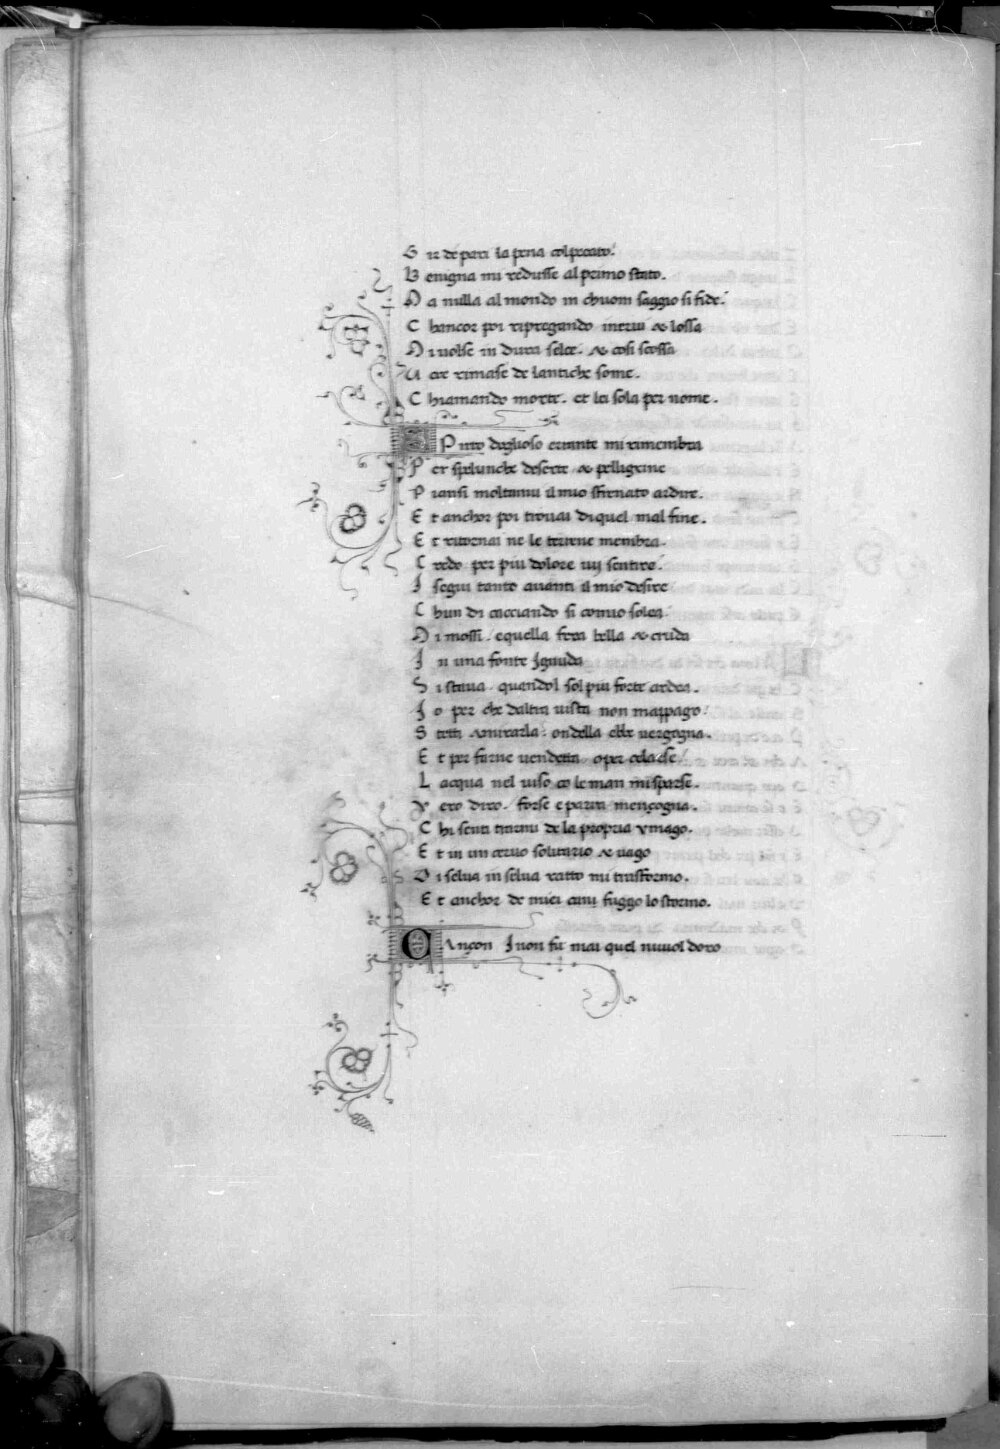 G ir de pari la pena col peccato.
B enigna mi redusse al primo stato.
M a nulla al mondo in chuom saggio si fide.
C hancor poi ripregando inervi & lossa
M i volse in dura selce. & cosi scossa
V oce rimase de lantiche some.
C hiamando morte. et lei sola per nome.
S Pirto doglioso errante mi rimembra
P er spelunche deserte & pelligrine
P iansi moltanni il mio sfrenato ardire.
E t anchor poi trovai di quel mal fine.
E t ritornai ne le terrene membra.
C redo per piu dolore ivi sentire.
I segui tanto avanti il mio desire
C hun di cacciando si comio solea
M i mossi. e quella fera bella & cruda
I n una fonte Ignuda
S i stava. quandol sol piu forte ardea.
I o per che daltra vista non mappago.
S tetti amirarla. ondella ebbe vergogna.
E t per farne vendetta. o per celarse.
L acqua nel viso co le man mi sparse.
V ero diro. forse e parra mençogna.
C hi senti trarmi de la propria ymago.
E t in un cervo solitario & vago
D i selva in selva ratto mi trasformo.
E t anchor de miei cani fuggo lo stormo.
C Ançon I non fu mai quel nuvol doro